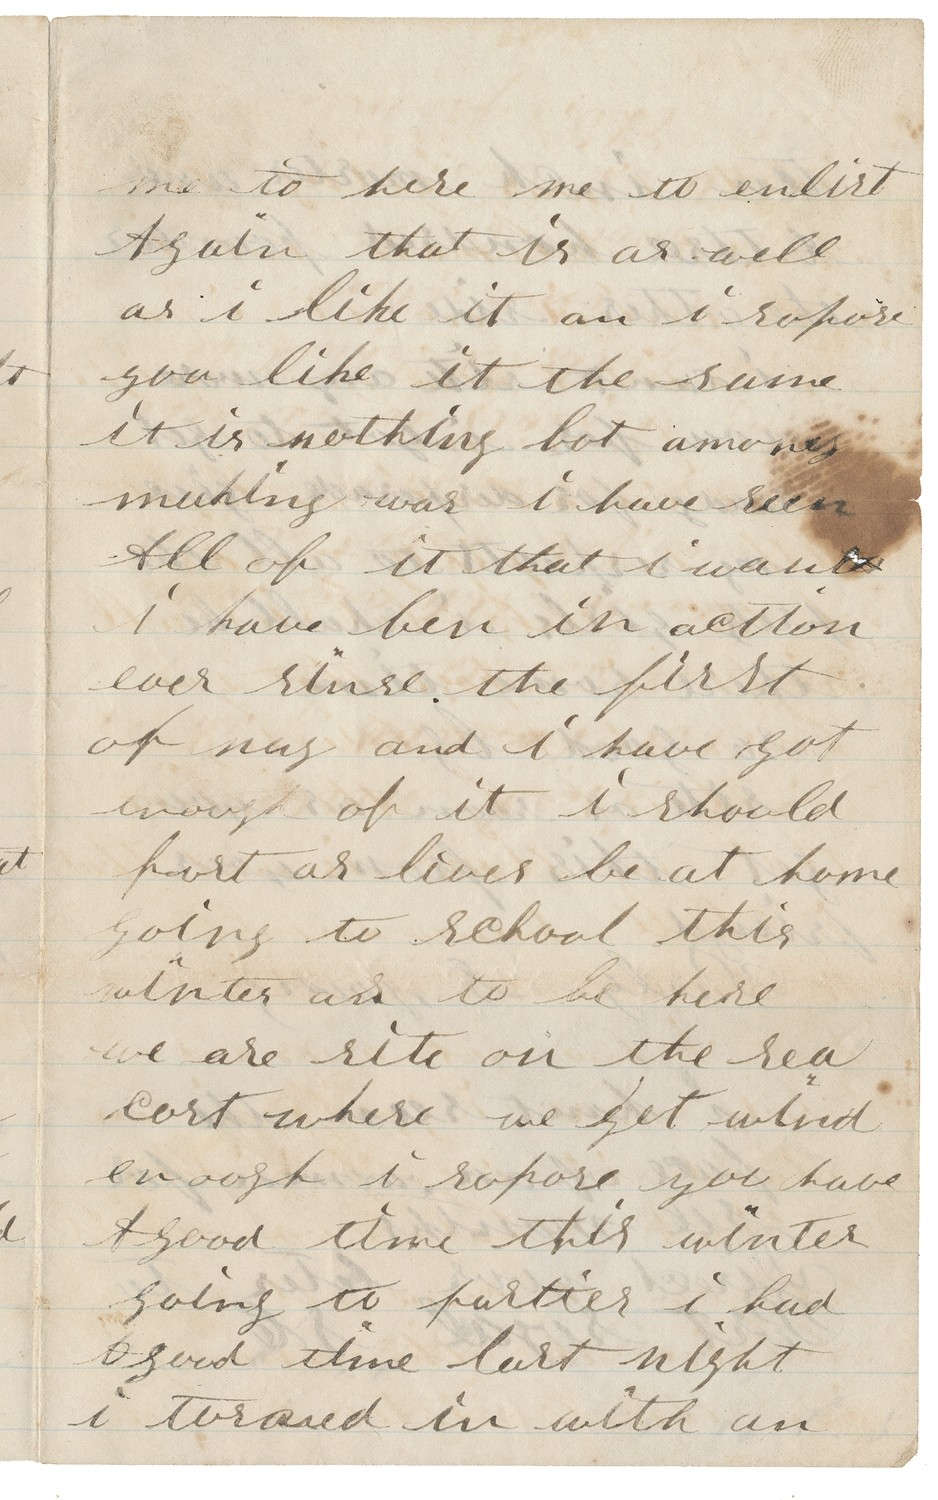 me to here me to enlist
Again that is as well
as i like it an i sopose
you like it the same
it is nothing bot amoney
making war i have seen
All of it that i want
i have ben in action
ever sinse. the first
of may and i have got
enough of it i should
as lives be at home
going to school this
winter as to be here
we are rite on the sea
cost where we get wind
enough i sopose you have
Agood time this winter
going to parties i had
Agood time last night
i torned in with an